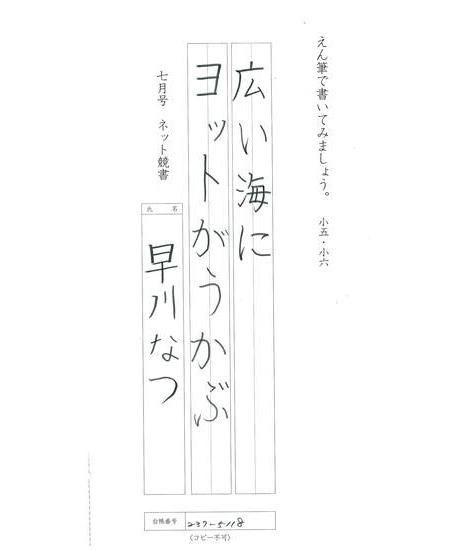 えん筆で書いてみましょう。 小五・小六
広い海に
ヨットがうかぶ
七月号 ネット競書
氏名
早川なつ
台帳番号 237-5118
(コピー不可)